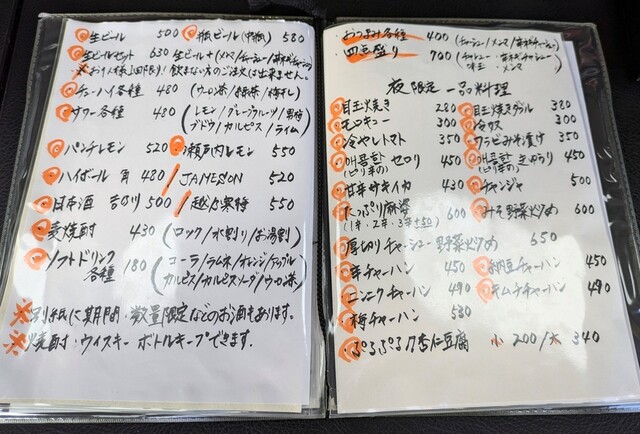 生ビール 500 瓶ビール(中瓶) 580
生ビールセット 630 生ビール+(メンマ/チャーシュー/
※お1人様1回限り! 飲まない方のご注文は出来ません。
チューハイ各種 480 (ウーロン茶/緑茶/梅干し)
サワー各種 480 (レモン/グレープフルーツ/巨峰
ブドウ/カルピス/ライム)
パンチレモン 520 瀬戸内レモン 550
ハイボール 角 480 JAMESON 520
日本酒 吉乃川 500 越乃寒梅 550
麦焼酎 430 (ロック/水割り/お湯割)
ソフトドリンク各種 180 (コーラ/ラムネ/オレンジ/アップル
カルピス/カルピスソーダ/ウーロン茶)
※別紙に期間・数量限定などのお酒もあります。
※焼酎・ウイスキー ボトルキープできます。
おつまみ各種 400 (チャーシュー/メンマ/
四点盛り 700 (チャシュー
味玉 ・メンマ
夜限定 一品料理
目玉焼き 280 目玉焼きダブル 380
モロキュー 300 冷奴 300
冷やしトマト 350 ワラビみそ漬け 350
セロリ 450 きゅうり 450
(ピリ辛の) (ピリ辛の)
甘辛サキイカ 430 チャンジャ 500
たっぷり麻婆 600 みそ野菜炒め 600
(1辛・2辛・3辛+50)
厚切りチャーシュー野菜炒め 650
半チャーハン 450 納豆チャーハン 450
ニンニクチャーハン 490 キムチチャーハン 490
梅チャーハン 530
・ぷるぷる杏仁豆腐 小 200/大 340